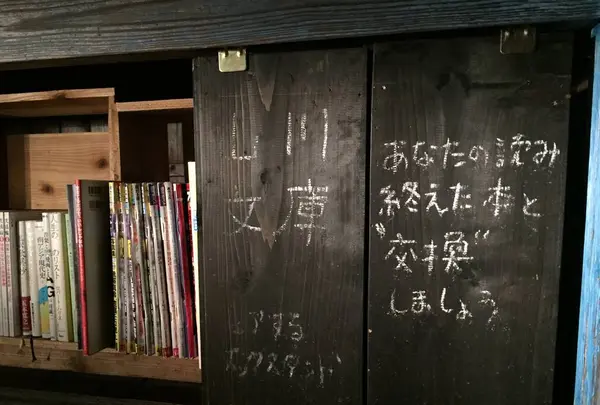 山川
文庫
する
あなたの読み
終えた本と
"交換"
しましょう